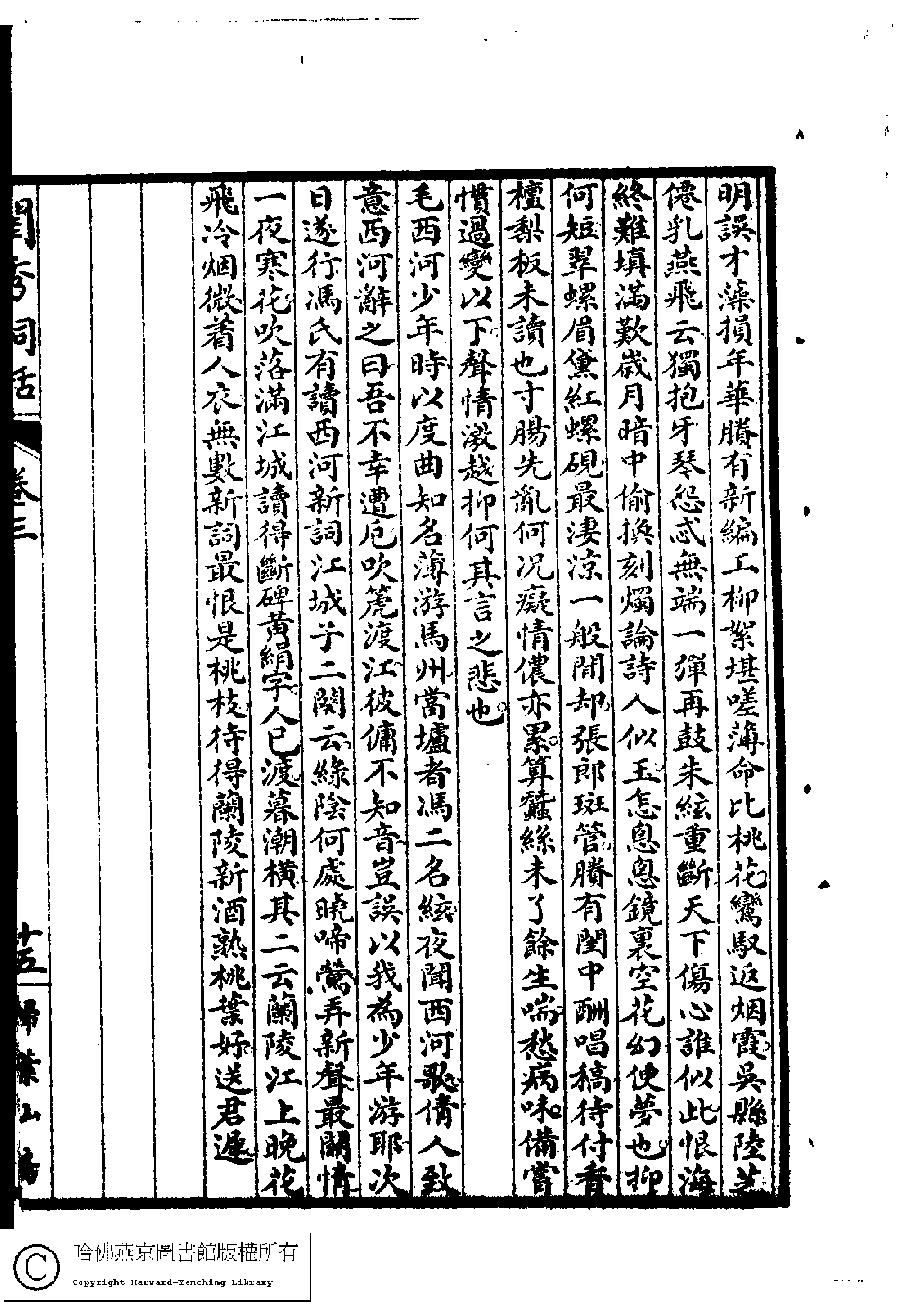 明誤才藻損年華賸有新編工柳絮堪嗟薄命比桃花鸞馭返烟霞吳縣陸芝
僊乳燕飛云獨抱牙琴怨忒無端一彈再鼓朱絃重斷天下傷心誰似此恨海
終難填滿歎歲月暗中偷換刻燭論詩人似玉怎悤悤鏡裏空花幻使夢也抑
何短翠螺眉黛紅螺硯最淒涼一般閒却張郎斑管賸有閨中酬唱稿待付香
檀梨板未讀也寸腸先亂何况癡情儂亦累算蠶絲未了餘生喘愁病味備嘗
慣過變以下聲情激越抑何其言之悲也
毛西河少年時以度曲知名薄游馬州當壚者馮二名絃夜聞西河歌倩人致
意西河辭之曰吾不幸遭厄吹箎渡江彼傭不知音豈誤以我為少年游耶次
日遂行馮氏有讀西河新詞江城子二闋云綠陰何處曉啼鶯弄新聲最關情
一夜寒花吹落滿江城讀得斷碑黃絹字人已渡暮潮橫其二云蘭陵江上晚花
飛冷烟微着人衣無數新詞最恨是桃枝待得蘭陵新酒熟桃葉好送君遲
閨秀詞話
卷三
十五
掃葉山房
哈佛燕京圖書館版權所有
Copyright Harvard-Yenching Library